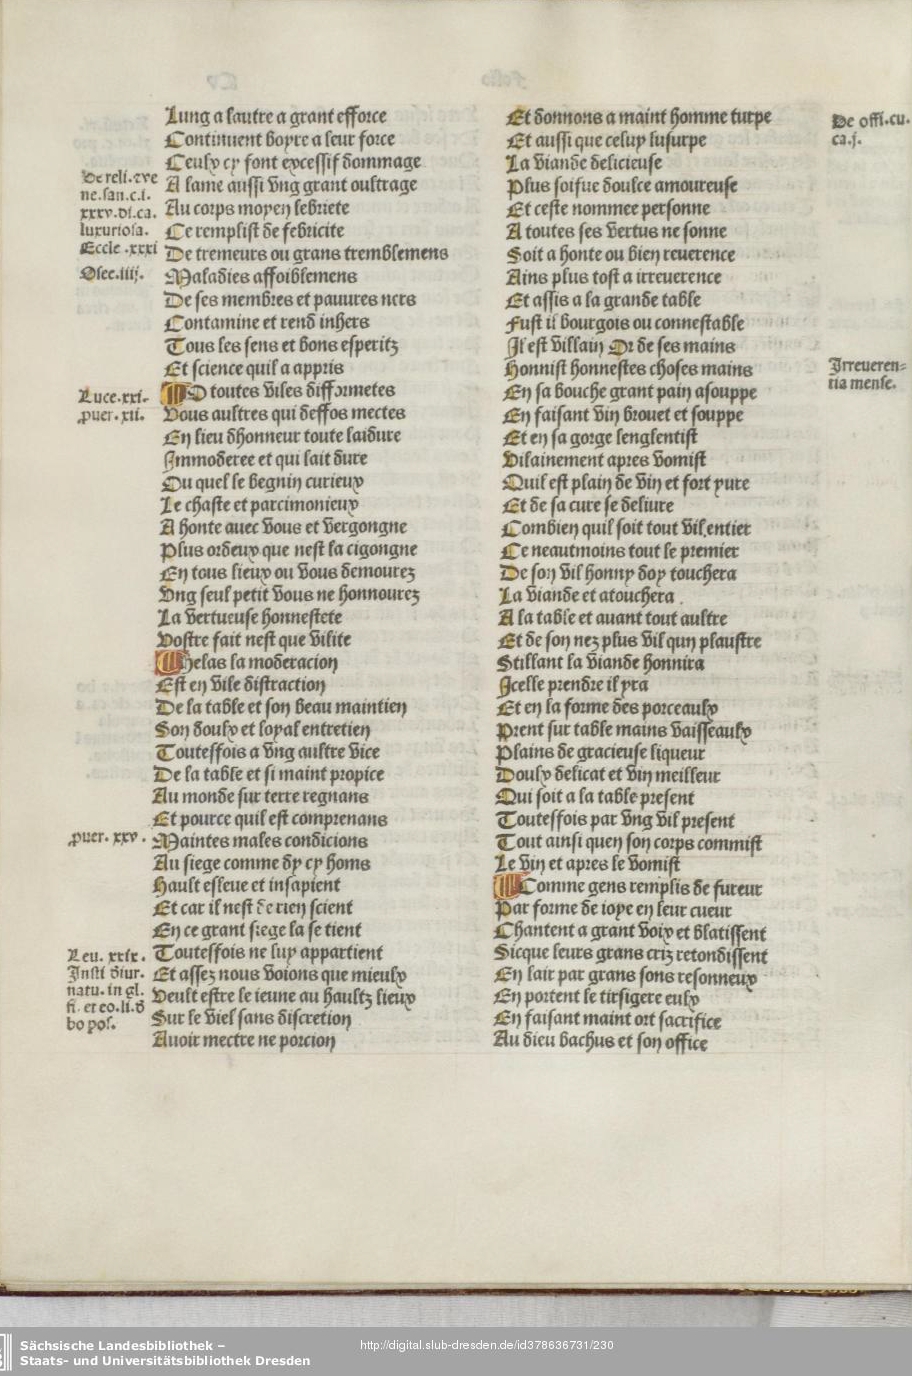 Lung a lautre a grant efforce
Continuent boyre a leur force
Ceulx cy font excessif dommage
A lame aussi vng grant oultrage
Au corps moyen lebriete
Ce remplist de febricite
De tremeurs ou grans tremblemens
Maladies affoiblemens
De ses membres et pauures ners
Contamine et rend inhers
Tous les sens et bons esperitz
Et science quil a appris
O toutes viles difformetes
Vous aultres qui deffos mectes
En lieu dhonneur toute laidure
Immoderee et qui lait dure
Ou quel le begnin curieux
Le chaste et parcimonieux
A honte auec vous et vergongne
Plus ordeux que nest la cigongne
En tous lieux ou vous demourez
Vng seul petit vous ne honnourez
La vertueuse honnestete
Vostre fait nest que vilite
helas la moderacion
Est en vile distraction
De la table et son beau maintien
Son doulx et loyal entretien
Toutesfois a vng aultre vice
De la table et si maint propice
Au monde sur terre regnans
Et pource quil est comprenans
Maintes males condicions
Au siege comme dy cy homs
Hault esleue et insapient
Et car il nest de rien scient
En ce grant siege la se tient
Toutesfois ne luy appartient
Et assez nous voions que mieulx
Veult estre le ieune au haultz lieux
Sur le viel sans discretion
Auoir mectre ne porcion
De reli. et ve
ne. san. c. i.
xxxv. di. ca.
luxuriosa.
Eccle .xxxi
Osee. iiij.
Luce. xxi.
puer. xii.
puer. xxv.
Leu. xxix.
Insti diur.
natu. in gl.
fi. et eo. li. d
bo pos.
Et donnons a maint homme turpe
Et aussi que celuy lusurpe
La viande delicieuse
Plus soifue doulce amoureuse
Et ceste nommee personne
A toutes ses vertus ne sonne
Soit a honte ou bien reuerence
Ains plus tost a irreuerence
Et assis a la grande table
Fust il bourgois ou connestable
Il est villain Or de ses mains
Honnist honnestes choses mains
En sa bouche grant pain asouppe
En faisant vin brouet et souppe
Et en sa gorge lenglentist
Vilainement apres vomist
Quil est plain de vin et fort yure
Et de sa cure se deliure
Combien quil soit tout vil entier
Ce neautmoins tout le premier
De son vil honny doy touchera
La viande et atouchera.
A la table et auant tout aultre
Et de son nez plus vil qun plaustre
Stillant la viande honnira
Icelle prendre il yra
Et en la forme des porceaulx
Prent sur table mains vaisseaulx
Plains de gracieuse liqueur
Doulx delicat et vin meilleur
Qui soit a la table present
Toutesfois par vng vil present
Tout ainsi quen son corps commist
Le vin et apres le vomist
Comme gens remplis de fureur
Par forme de ioye en leur cueur
Chantent a grant voix et blatissent
Sicque leurs grans criz retondissent
En lair par grans sons resonneux
En portent le tirsigere eulx
En faisant maint ort sacrifice
Au dieu bachus et son office
De offi. cu.
ca. j.
Irreueren=
tia mense.
Sächsische Landesbibliothek –
Staats- und Universitätsbibliothek Dresden
http://digital.slub-dresden.de/id378636731/230